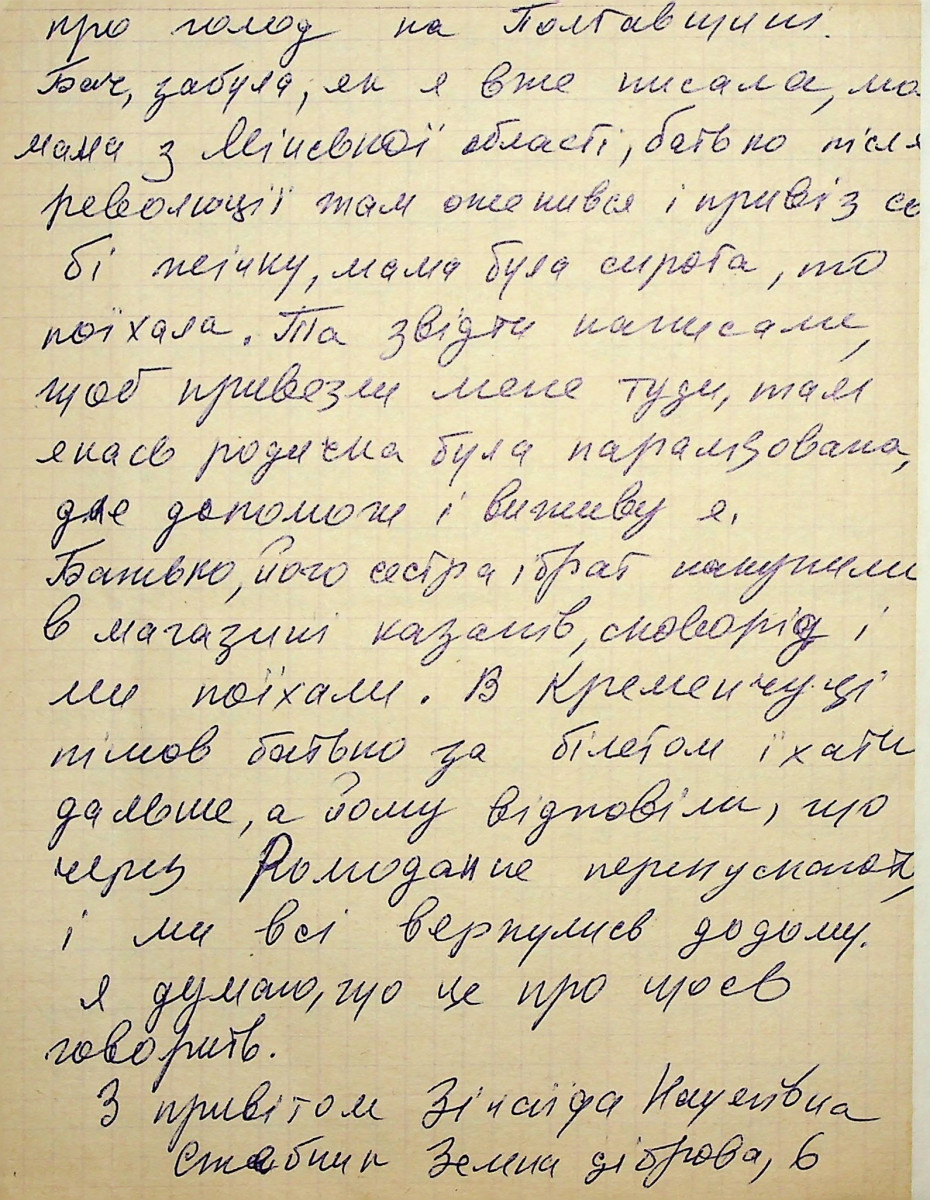 про голод на Полтавщині.
Бач, забула, як я вже писала, мо
мама з Мінської області, батько після
революції там оженився і привіз со
бі жінку, мама була сирота, то
поїхала. Та звідти написали,
щоб привезли мене туди, там
якась родичка була паралізована,
дле допомоги і виживу я.
Батько, його сестра і брат накупили
в магазині казанів, сковорід і
ми поїхали. В Кременчуці
пішов батько за білетом їхати
дальше, а йому відповіли, що
через Ромодан не перепускають,
і ми всі вернулись додому.
Я думаю, що це про щось
говорить.
З привітом Зінаїда
Зелена діброва, 6